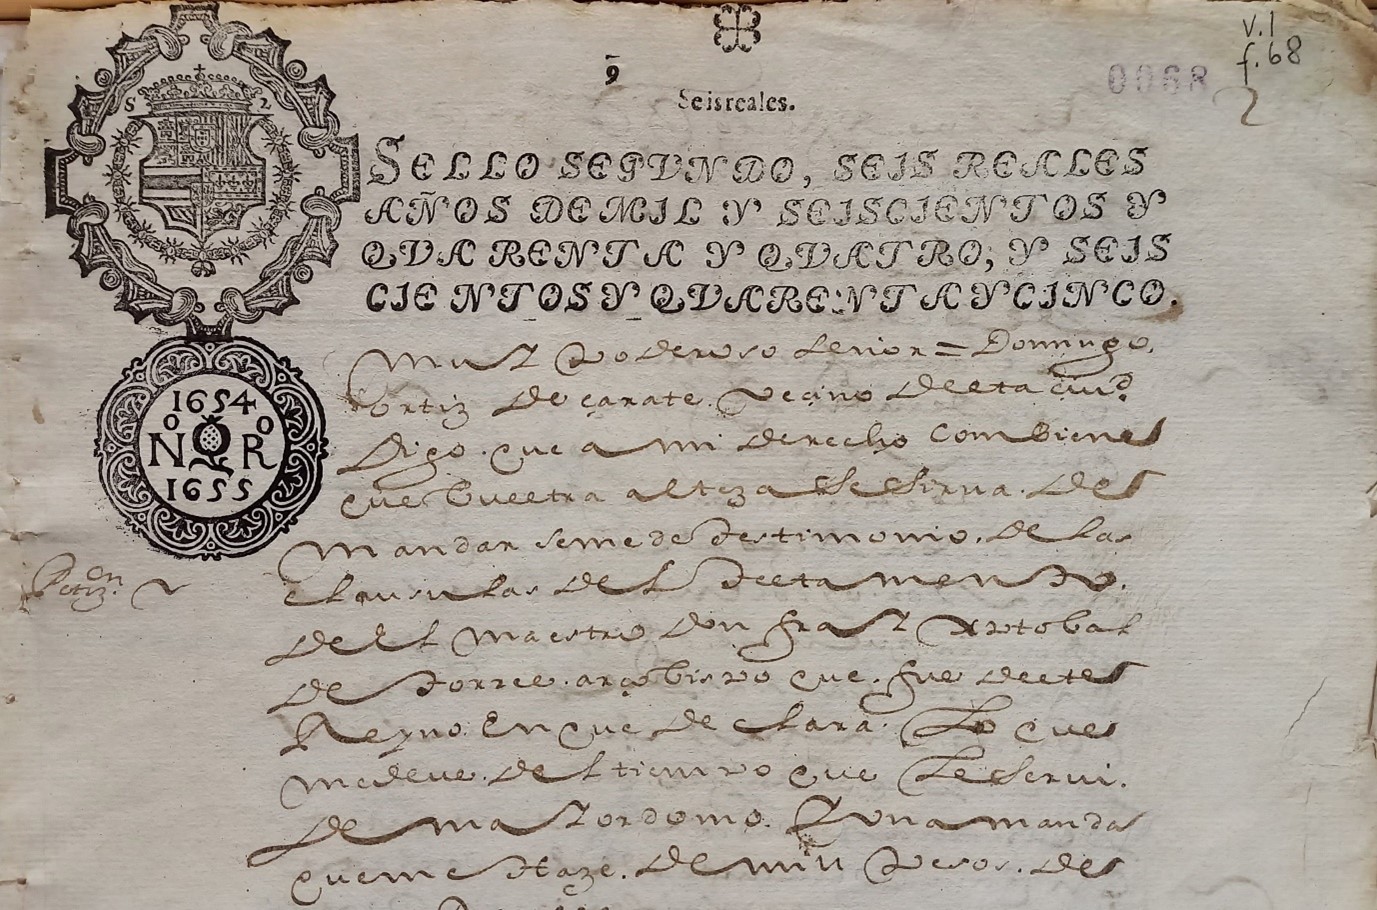 v. 1
f. 68
0068
2
9
Seis reales.
S 2
SELLO SEGVNDO, SEIS REALES
AÑOS DE MIL Y SEISCIENTOS Y
QVARENTA Y QVATRO, Y SEIS
CIENTOS Y QVARENTA Y CINCO.
1654
NoRo
1655
Muy Poderoso Señor = Domingo
ortiz de çarate. Veçino de esta ciud.
Digo. que a mi derecho combiene
que Vuestra alteza se sirva. de
mandar se me de testimonio. de las
clausulas del testamento.
del Maestro don fray Xptobal
de torres. arçobispo que. fue de este
Reyno. En que declara. Lo que
me deve. del tiempo que Le servi.
de mayordomo. Y una manda
que me haze. de mill Pesos. de
Petizon